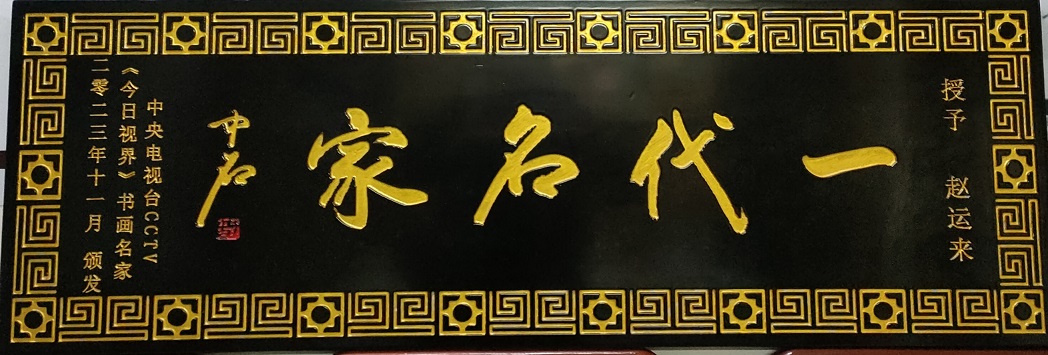 授予 赵运来
一代名家
中石
中央电视台CCTV
《今日视界》书画名家
二零二三年十一月 颁发